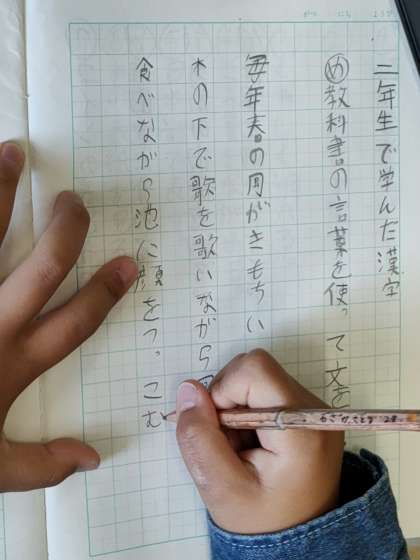 がつ にち ようび
二年生で学んだ漢字
め教科書の言葉を使って文を
毎年春の がきもちい
木の下で歌を歌いながら
食べながら池に顔をつっこむ